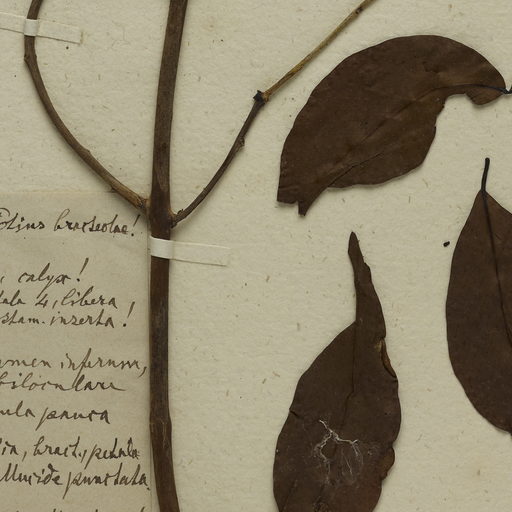 potius bracteolae!
calyx!
4, libera,
stam. inserta!
inferum,
biloculare
pauca
bract., petala
pellucide punctata